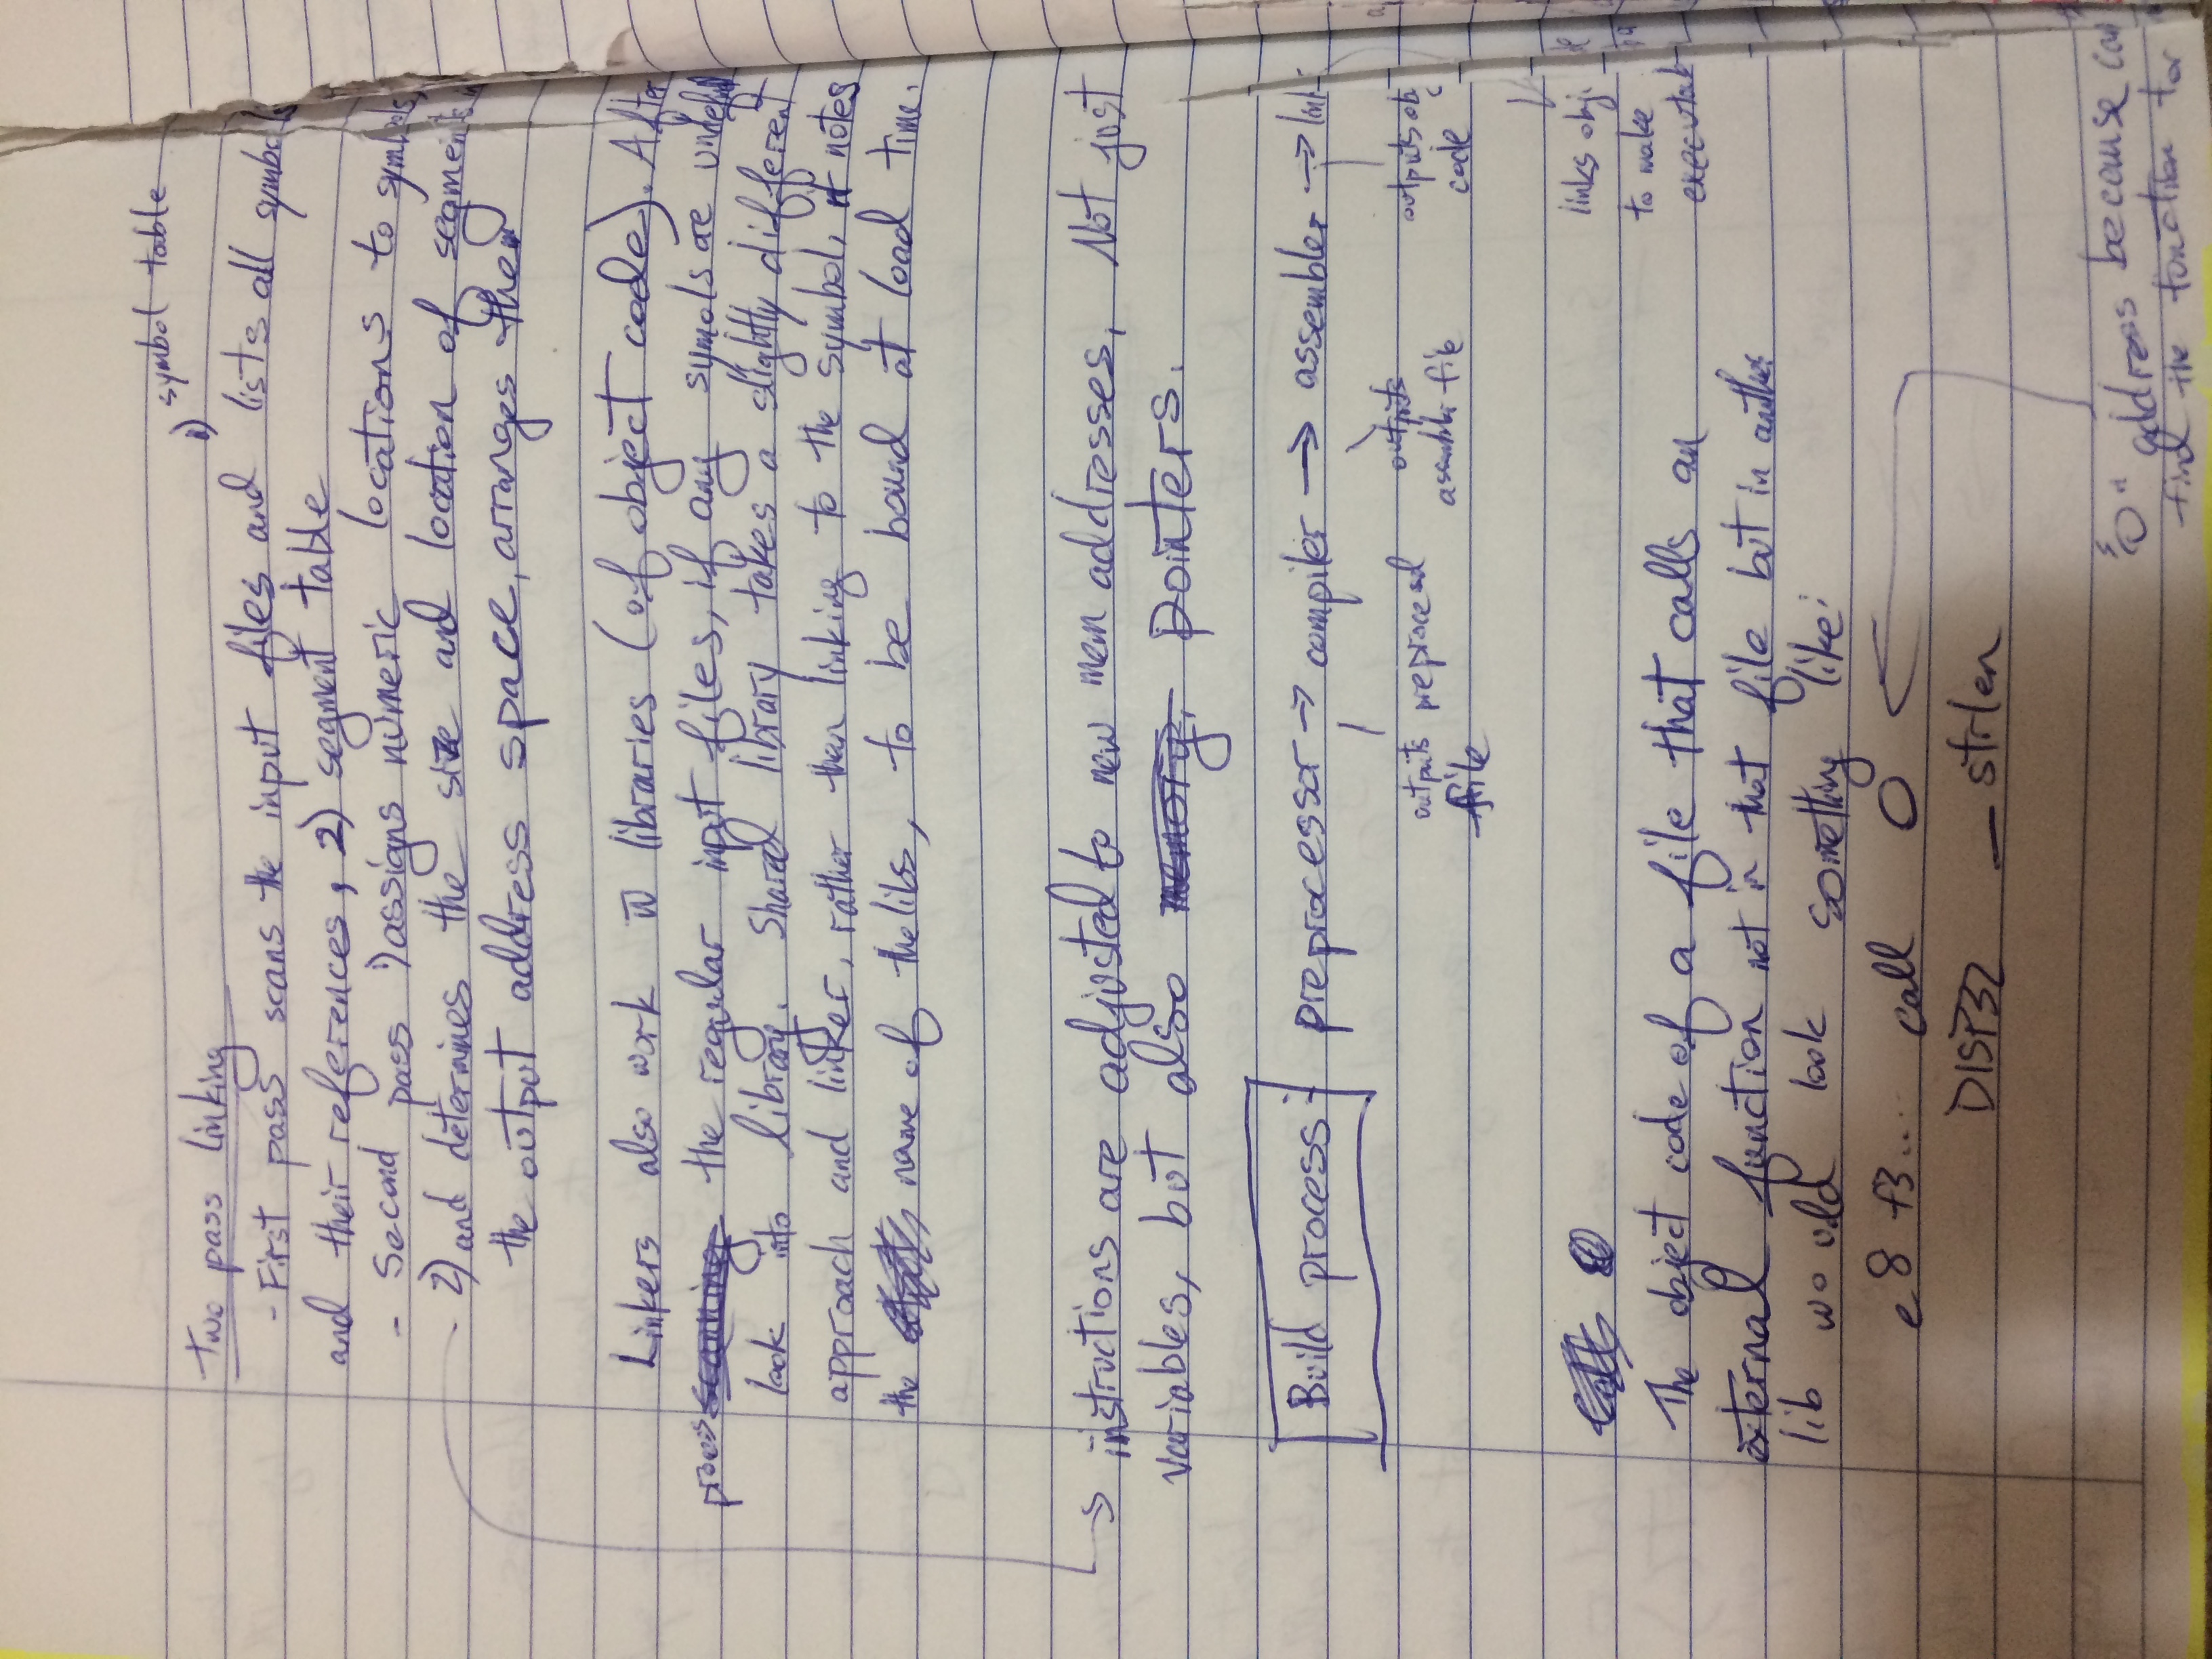 1) symbol table
Two pass linking
- First pass scans the input files and lists all symbols
and their references, 2) segment table
- Second pass 1) assigns numeric locations to symbols,
2) and determines the size and location of segments in
the output address space, arranges them
Linkers also work w libraries (of object code). After
process the regular input files, if any symols are undefined
look into library. Shared library takes a slightly different
approach and linker, rather than linking to the symbol, it notes
the name of the libs, to be bound at load time.
→ instructions are adjusted to new mem addresses, Not just
variables, but also memory, pointers.
Build process: preprocessor → compiler → assembler → link
outputs preprocesed file
outputs assembler file
outputs obj code
links obj.
to make
executab
The object code of a file that calls an
external function not in that file but in another
lib would look something like:
e8 f3.... call 0
DISP32 _strlen
"0" address because can
find the function for